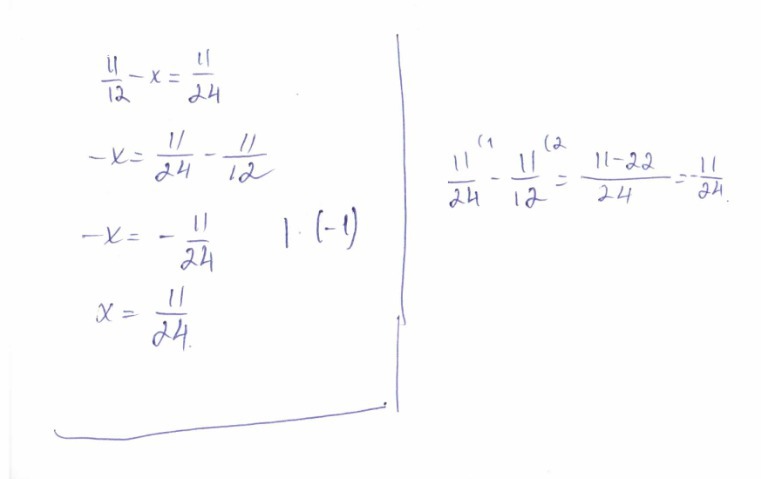 11/12 - x = 11/24
-x = 11/24 - 11/12
-x = - 11/24 | · (-1)
x = 11/24.
11/24 (1 - 11/12 (2 = 11-22/24 = -11/24.